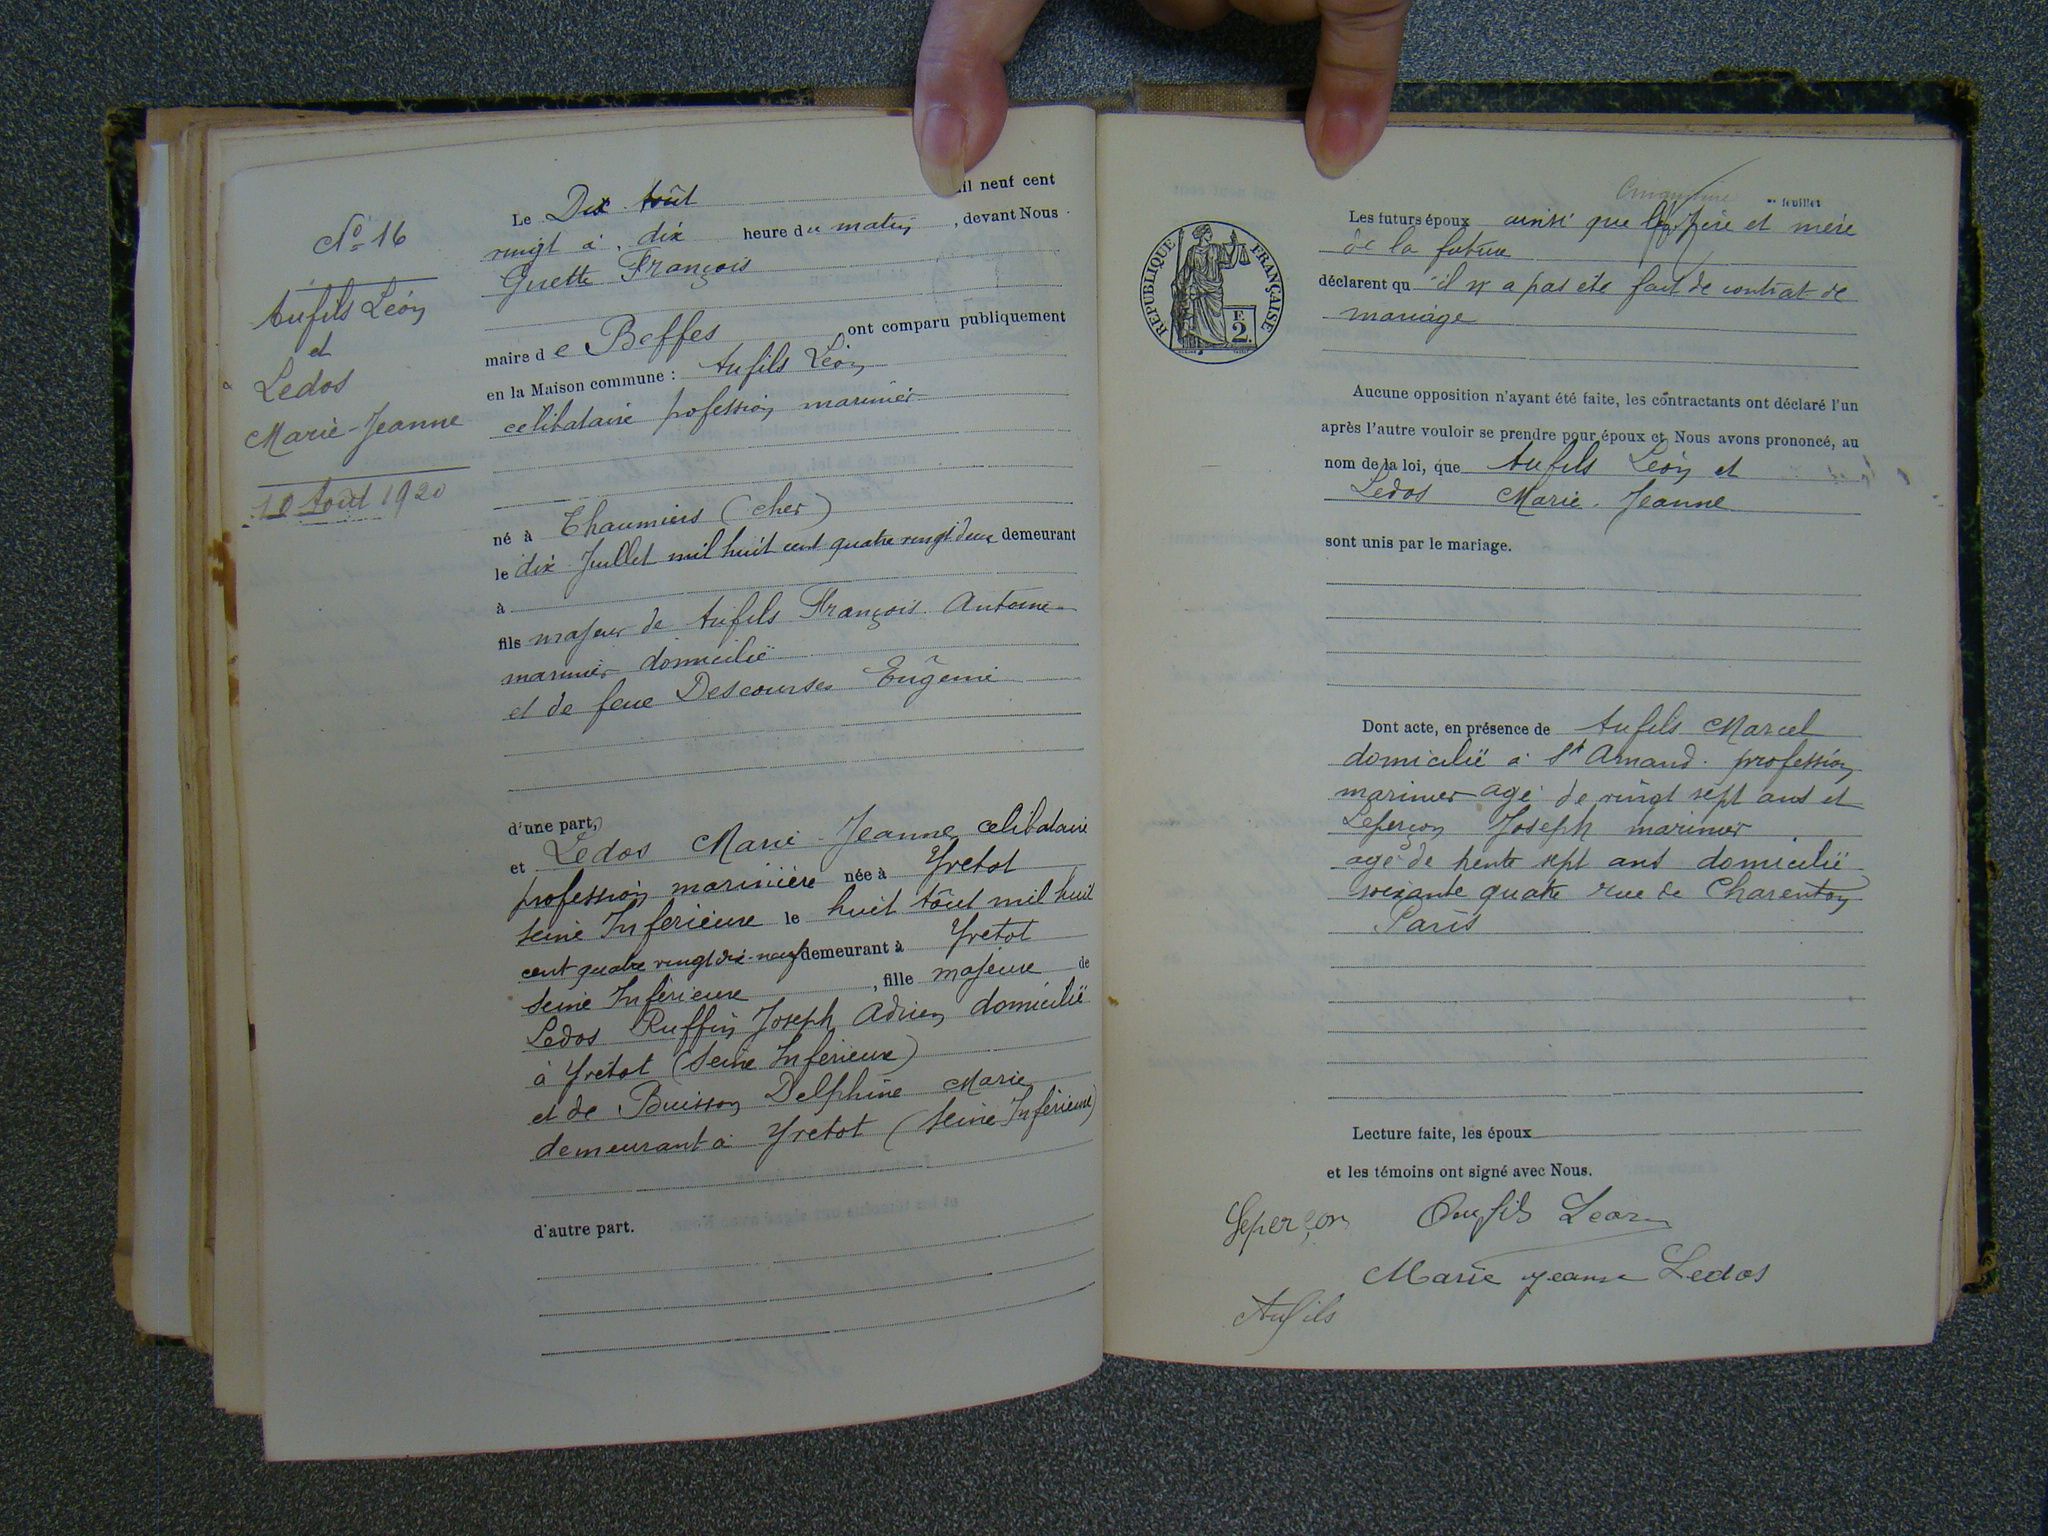 N° 16
Aufils Léon
et
Ledos
Marie-Jeanne
10 Août 1920
Le Dix Août mil neuf cent
vingt à dix heure du matin, devant Nous
Guette François
maire de Beffes ont comparu publiquement
en la Maison commune : Aufils Léon
celibataire profession marinier
né à Chaumiers (Cher)
le dix Juillet mil huit cent quatre vingt deux demeurant
à
fils majeur de Aufils François Antoine
marinier domicilié
et de feue Descourses Eugénie
d'une part,
et Ledos Marie-Jeanne celibataire
profession marinière née à Yvetot
Seine Inférieure le huit Août mil huit
cent quatre vingt dix-neuf demeurant à Yvetot
Seine Inférieure, fille majeure de
Ledos Ruffin Joseph Adrien domicilié
à Yvetot (Seine Inférieure)
et de Buisson Delphine Marie
demeurant à Yvetot (Seine Inférieure)
d'autre part.
feuillet
Les futurs époux ainsi que les père et mère
de la future
déclarent qu'il n'a pas été fait de contrat de
mariage
RÉPUBLIQUE FRANÇAISE
F
2.
Aucune opposition n'ayant été faite, les contractants ont déclaré l'un
après l'autre vouloir se prendre pour époux et Nous avons prononcé, au
nom de la loi, que Aufils Léon et
Ledos Marie-Jeanne
sont unis par le mariage.
Dont acte, en présence de Aufils Marcel
domicilié à St Amand. profession
marinier agé de vingt sept ans et
Leperçon Joseph marinier
agé de trente sept ans domicilié
soixante quatre rue de Charenton
Paris
Lecture faite, les époux
et les témoins ont signé avec Nous.
Leperçon Aufils Leon
Marie jeanne Ledos
Aufils